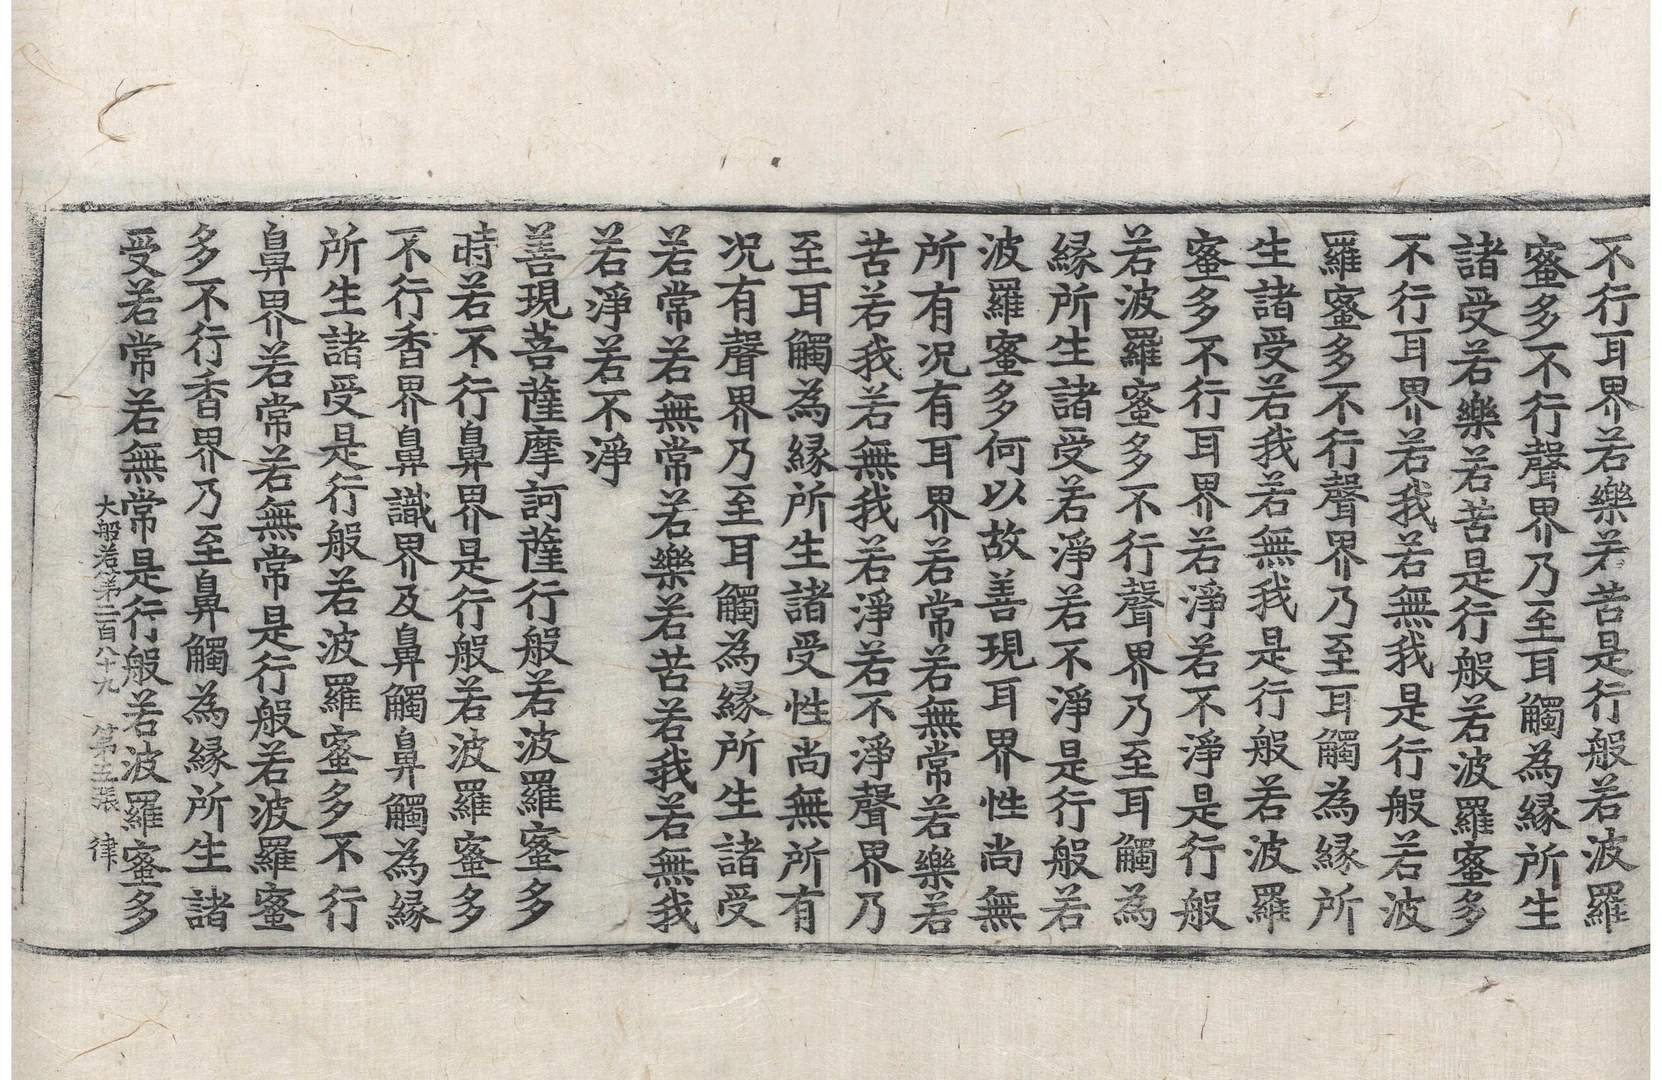 不行耳界若樂若苦是行般若波羅
蜜多不行聲界乃至耳觸為緣所生
諸受若樂若苦是行般若波羅蜜多
不行耳界若我若無我是行般若波
羅蜜多不行聲界乃至耳觸為緣所
生諸受若我若無我是行般若波羅
蜜多不行耳界若淨若不淨是行般
若波羅蜜多不行聲界乃至耳觸為
緣所生諸受若淨若不淨是行般若
波羅蜜多何以故善現耳界性尚無
所有况有耳界若常若無常若樂若
苦若我若無我若淨若不淨聲界乃
至耳觸為緣所生諸受性尚無所有
况有聲界乃至耳觸為緣所生諸受
若常若無常若樂若苦若我若無我
若淨若不淨
善現菩薩摩訶薩行般若波羅蜜多
時若不行鼻界是行般若波羅蜜多
不行香界鼻識界及鼻觸鼻觸為緣
所生諸受是行般若波羅蜜多不行
鼻界若常若無常是行般若波羅蜜
多不行香界乃至鼻觸為緣所生諸
受若常若無常是行般若波羅蜜多
大般若第二百八十九 第主張 律